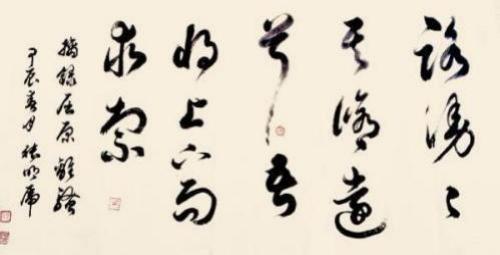 路漫々
其修遠
兮吾
将上下而
求索
摘録屈原離騷
甲辰春月